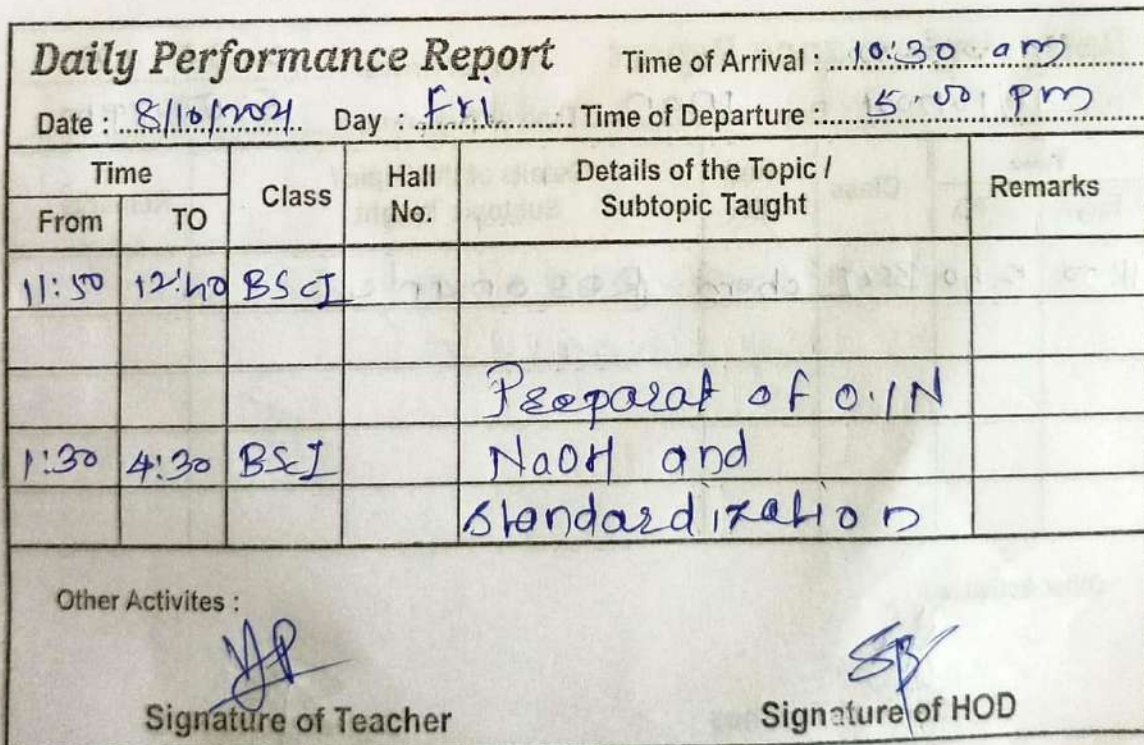 Daily Performance Report Time of Arrival : 10:30 am
Date : 8/10/2021 Day : Fri Time of Departure : 5:00 pm
Time Class Hall No. Details of the Topic / Subtopic Taught Remarks
From TO
11:50 12:40 BSc I
Preparat of 0.1N
1:30 4:30 BSc I NaOH and
standardization
Other Activites :
Signature of Teacher Signature of HOD